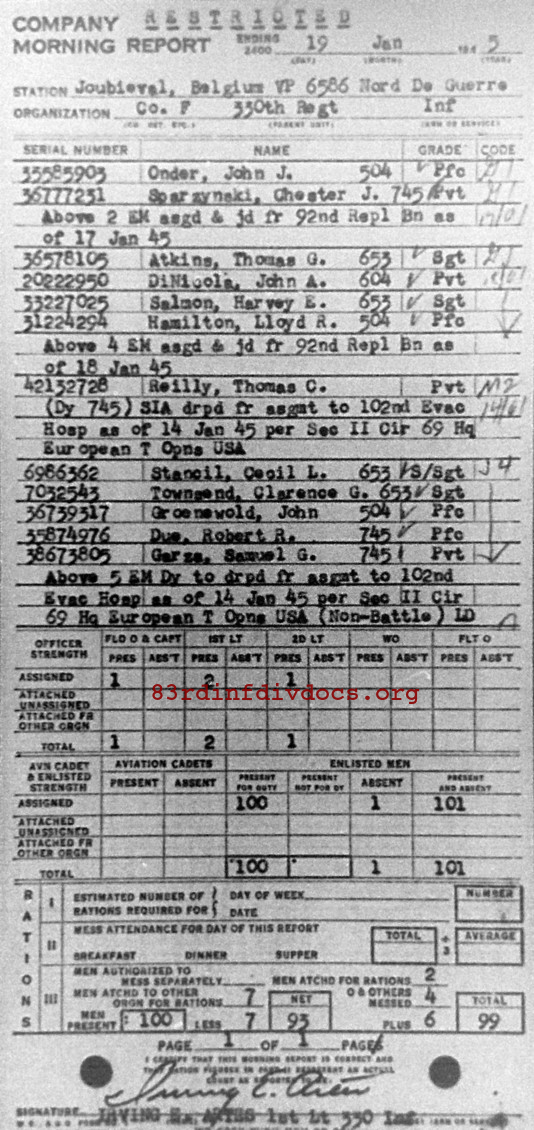 RESTRICTED
COMPANY
MORNING REPORT
ENDING
2400 19 Jan 194 5
(DAY) (MONTH) (YEAR)
STATION Joubieval, Belgium VP 6586 Nord De Guerre
ORGANIZATION Co. F 330th Regt Inf
(CO. DET. ETC.) (PARENT UNIT) (ARM OR SERVICE)
SERIAL NUMBER NAME GRADE CODE
35585903 Onder, John J. 504 Pfc
36777231 Sparzynski, Chester J. 745 Pvt
Above 2 EM asgd & jd fr 92nd Repl Bn as
of 17 Jan 45
36578105 Atkins, Thomas G. 653 Sgt
20222950 DiNicola, John A. 604 Pvt
33227025 Salmon, Harvey E. 653 Sgt
31224294 Hamilton, Lloyd R. 504 Pfc
Above 4 EM asgd & jd fr 92nd Repl Bn as
of 18 Jan 45
42132728 Reilly, Thomas C. Pvt
(Dy 745) SIA drpd fr asgmt to 102nd Evac
Hosp as of 14 Jan 45 per Sec II Cir 69 Hq
European T Opns USA
6986362 Stancil, Cecil L. 653 S/Sgt J4
7032543 Townsend, Clarence G. 653 Sgt
36739317 Groenewold, John 504 Pfc
35874976 Due, Robert R. 745 Pfc
38673805 Garza, Samuel G. 745 Pvt
Above 5 EM Dy to drpd fr asgmt to 102nd
Evac Hosp as of 14 Jan 45 per Sec II Cir
69 Hq European T Opns USA (Non-Battle) LD
OFFICER STRENGTH FLD O & CAPT 1ST LT 2D LT WO FLT O
PRES ABS'T PRES ABS'T PRES ABS'T PRES ABS'T PRES ABS'T
ASSIGNED 1 2 1
ATTACHED UNASSIGNED
ATTACHED FR OTHER ORGN
TOTAL 1 2 1
83rdinfdivdocs.org
AVN CADET & ENLISTED STRENGTH AVIATION CADETS ENLISTED MEN
PRESENT ABSENT PRESENT FOR DUTY PRESENT NOT FOR DY ABSENT PRESENT AND ABSENT
ASSIGNED 100 1 101
ATTACHED UNASSIGNED
ATTACHED FR OTHER ORGN
TOTAL 100 1 101
RATIONS
I ESTIMATED NUMBER OF RATIONS REQUIRED FOR DAY OF WEEK DATE NUMBER
II MESS ATTENDANCE FOR DAY OF THIS REPORT TOTAL ÷ 3 AVERAGE
BREAKFAST DINNER SUPPER
III MEN AUTHORIZED TO MESS SEPARATELY MEN ATCHD FOR RATIONS 2
MEN ATCHD TO OTHER ORGN FOR RATIONS 7 NET O & OTHERS MESSED 4 TOTAL
MEN PRESENT 100 LESS 7 93 PLUS 6 99
PAGE 1 OF 1 PAGES
I CERTIFY THAT THIS MORNING REPORT IS CORRECT AND
SIGNATURE IRVING E. 1st Lt 330 Inf